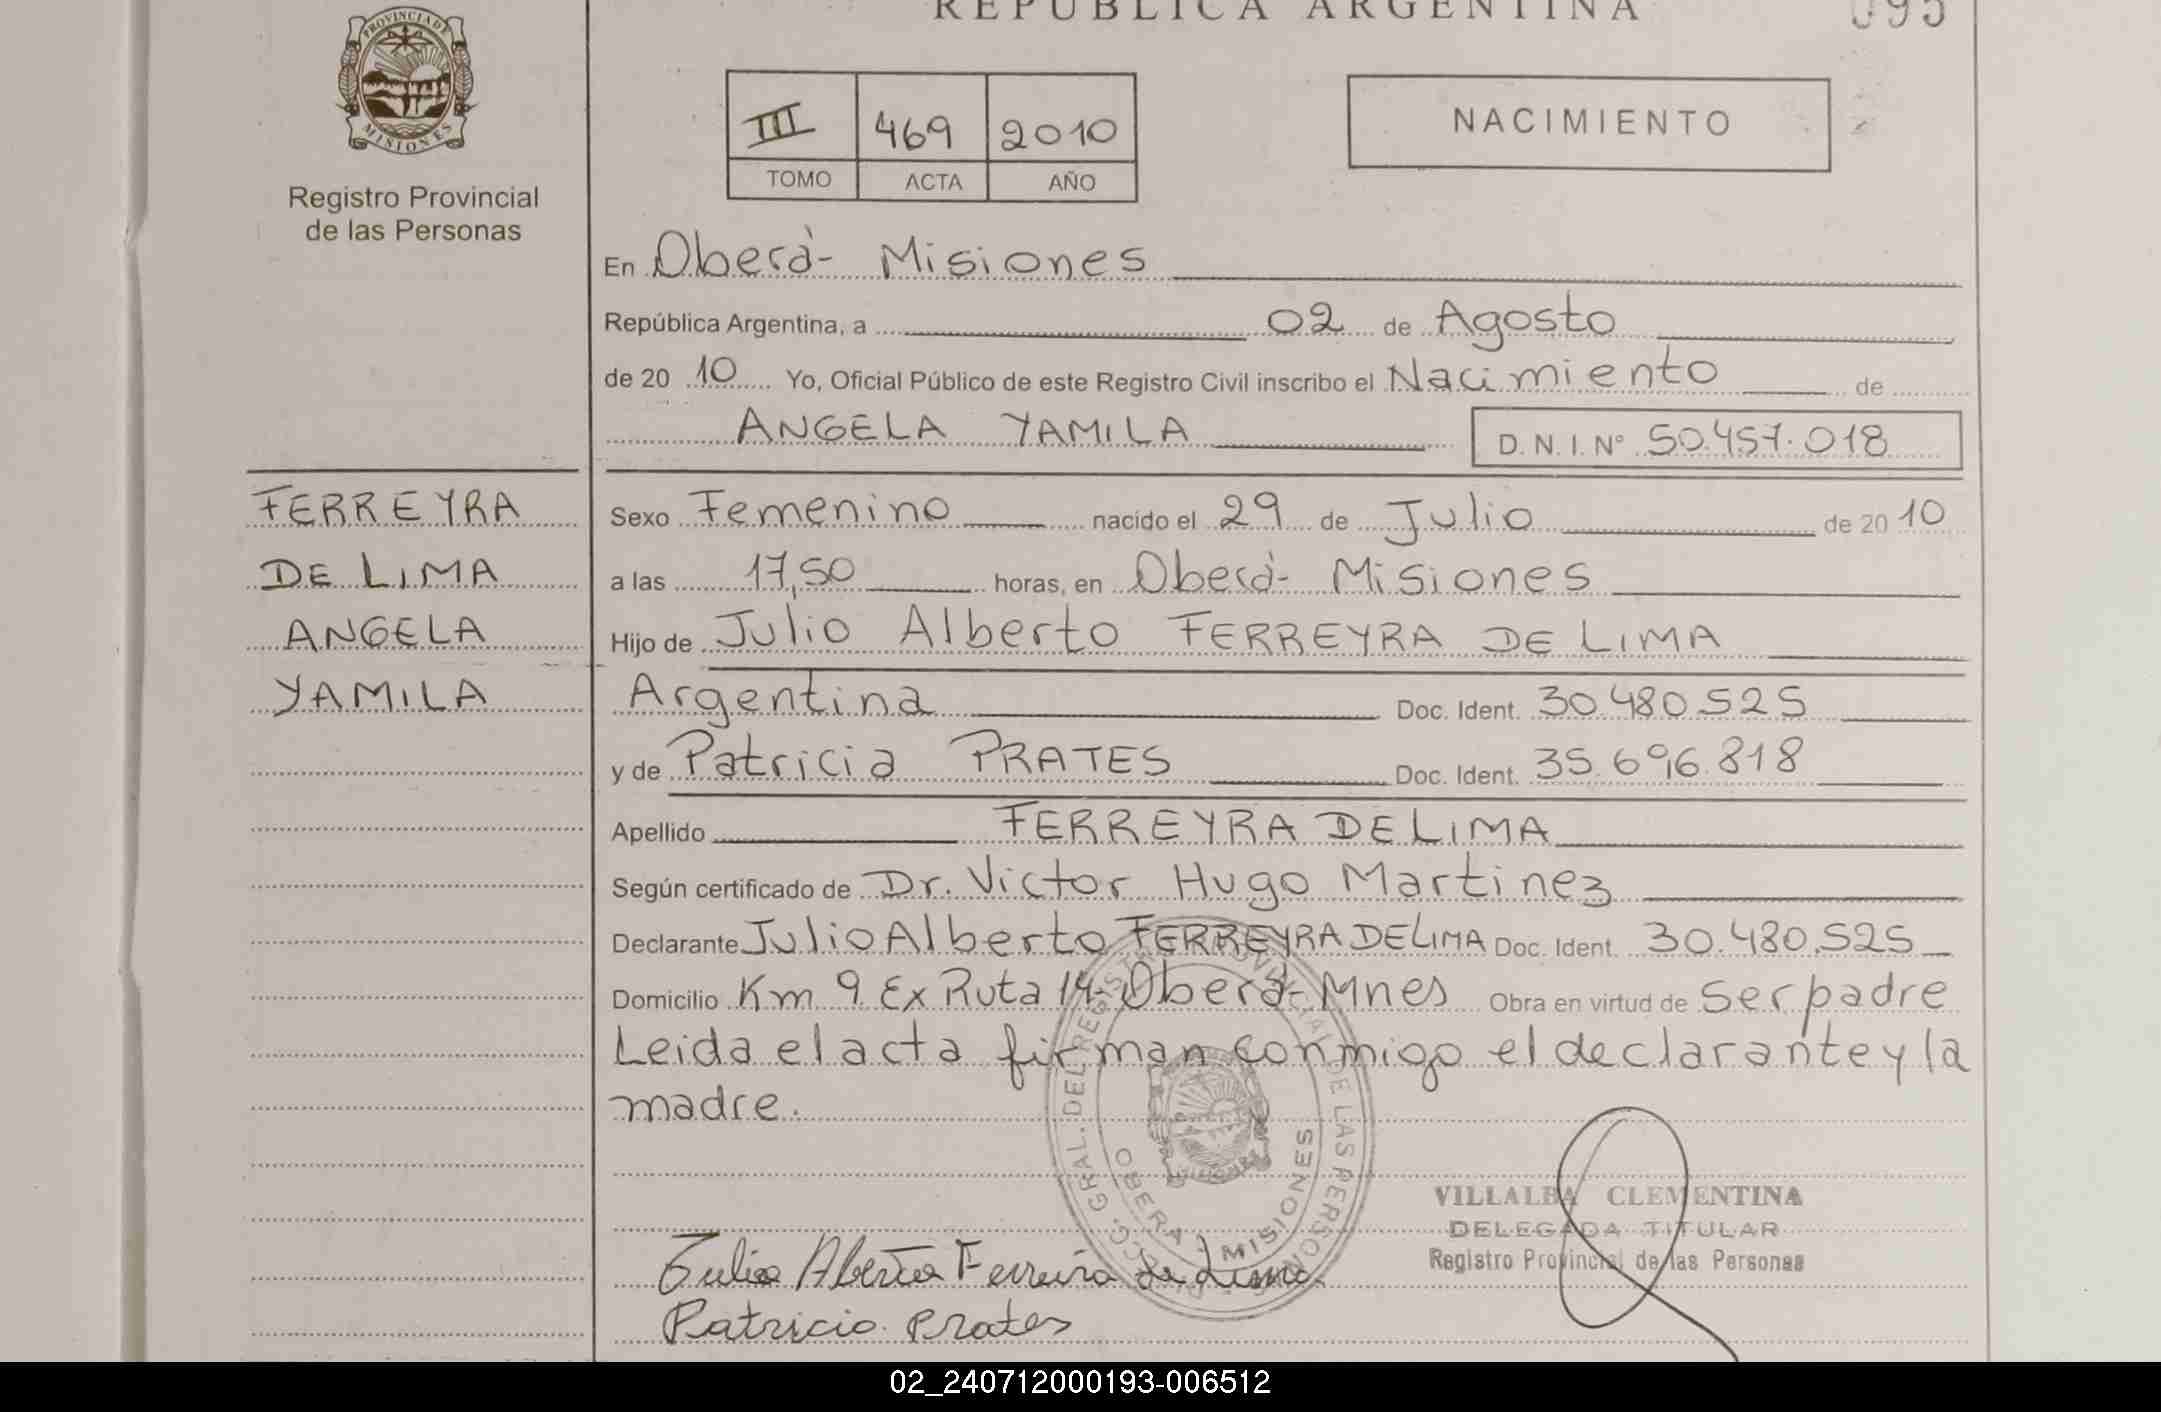 REPUBLICA ARGENTINA
095
PROVINCIA DE MISIONES
Registro Provincial
de las Personas
III 469 2010
TOMO ACTA AÑO
NACIMIENTO
En Oberà- Misiones
República Argentina, a 02 de Agosto
de 20 10 Yo, Oficial Público de este Registro Civil inscribo el Nacimiento de
ANGELA YAMILA D. N. I. Nº 50.457.018
FERREYRA
DE LIMA
ANGELA
YAMILA
Sexo Femenino nacido el 29 de Julio de 20 10
a las 17,50 horas, en Oberà- Misiones
Hijo de Julio Alberto FERREYRA DE LIMA
Argentina Doc. Ident. 30.480.525
y de Patricia PRATES Doc. Ident. 35.696.818
Apellido FERREYRA DE LIMA
Según certificado de Dr. Victor Hugo Martinez
Declarante Julio Alberto FERREYRA DE LIMA Doc. Ident. 30.480.525
Domicilio Km 9 Ex Ruta 14- Oberà- Mnes Obra en virtud de Ser padre
Leida el acta firman conmigo el declarante y la
madre.
DIRECC. GRAL. DEL REGISTRO PROVINCIAL DE LAS PERSONAS
OBERA - MISIONES
VILLALBA CLEMENTINA
DELEGADA TITULAR
Registro Provincial de las Personas
Julio Alberto Ferreira de Lima
Patricia Prates
02_240712000193-006512